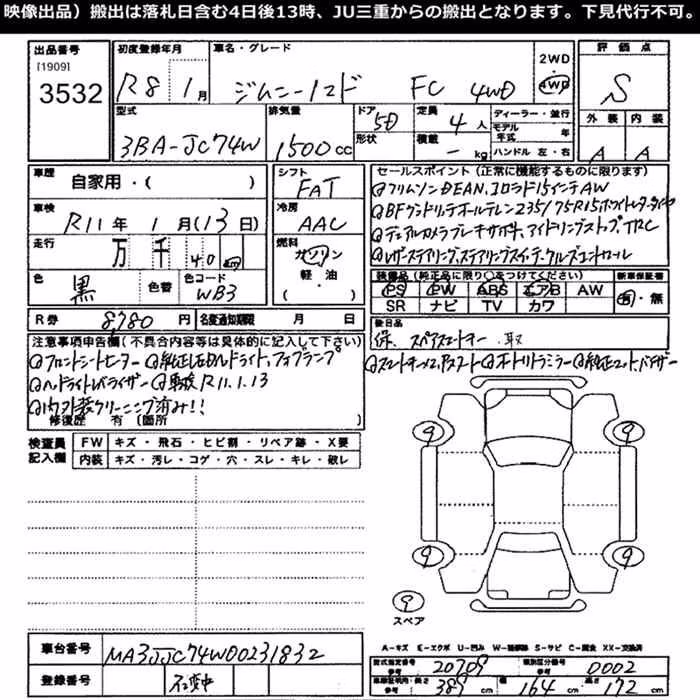 映像出品）搬出は落札日含む4日後13時、JU三重からの搬出となります。下見代行不可。
出品番号 初度登録年月 車名・グレード 2WD・4WD 評価点
[1909]
3532 R8 1月 ジムニーノマド FC 4WD S
型式 排気量 ドア 形状 定員 積載 ディーラー・並行 モデル年式 年 ハンドル 左・右 外装 内装
3BA-JC74W 1500cc 5D 4人 - kg A A
車歴 自家用・( ) シフト FAT セールスポイント(正常に機能するものに限ります)
車検 R11年 1月(13日) 冷房 AAC
走行 万 千 40 km 燃料 ガソリン 軽・油 ・( )
色 黒 色替 色コード WB3
クリムソンDEAN.コロラド15インチAW
BFグッドリッチオールテレン235/75R15ホワイトレタータイヤ
デュアルカメラブレーキサポート、アイドリングストップ、TRC
レザーステアリング、ステアリングスイッチ、クルーズコントロール
装備品(純正品に限り○をつけてください) 新車保証書
PS PW ABS エアB AW 有・無
SR ナビ TV カワ
R券 8,780円 名変通知期限 月 日
後日品
保. スペアスマートキー. 取
注意事項申告欄(不具合内容等は具体的に記入して下さい)
フロントシートヒーター 純正LEDヘッドライト、フォグランプ
スマートキーX2、Pスタート オートリトラミラー 純正マット、バイザー
ヘッドライトレベライザー 車検R11.1.13
内外装クリーニング済み!!
修復歴 有 (箇所 )
検査員記入欄 FW キズ・飛石・ヒビ割・リペア跡・X要
内装 キズ・汚レ・コゲ・穴・スレ・キレ・破レ
9 9
9 9
9
スペア
A-キズ E-エクボ U-凹み W-補修跡 S-サビ C-腐食 XX-交換済
車台番号 MA3JJC74W00231832
登録番号 名変中
型式指定番号 参考 20709 類別区分番号 参考 0002
車検証記載・長さ 参考 389cm 幅 164cm 高さ 172cm